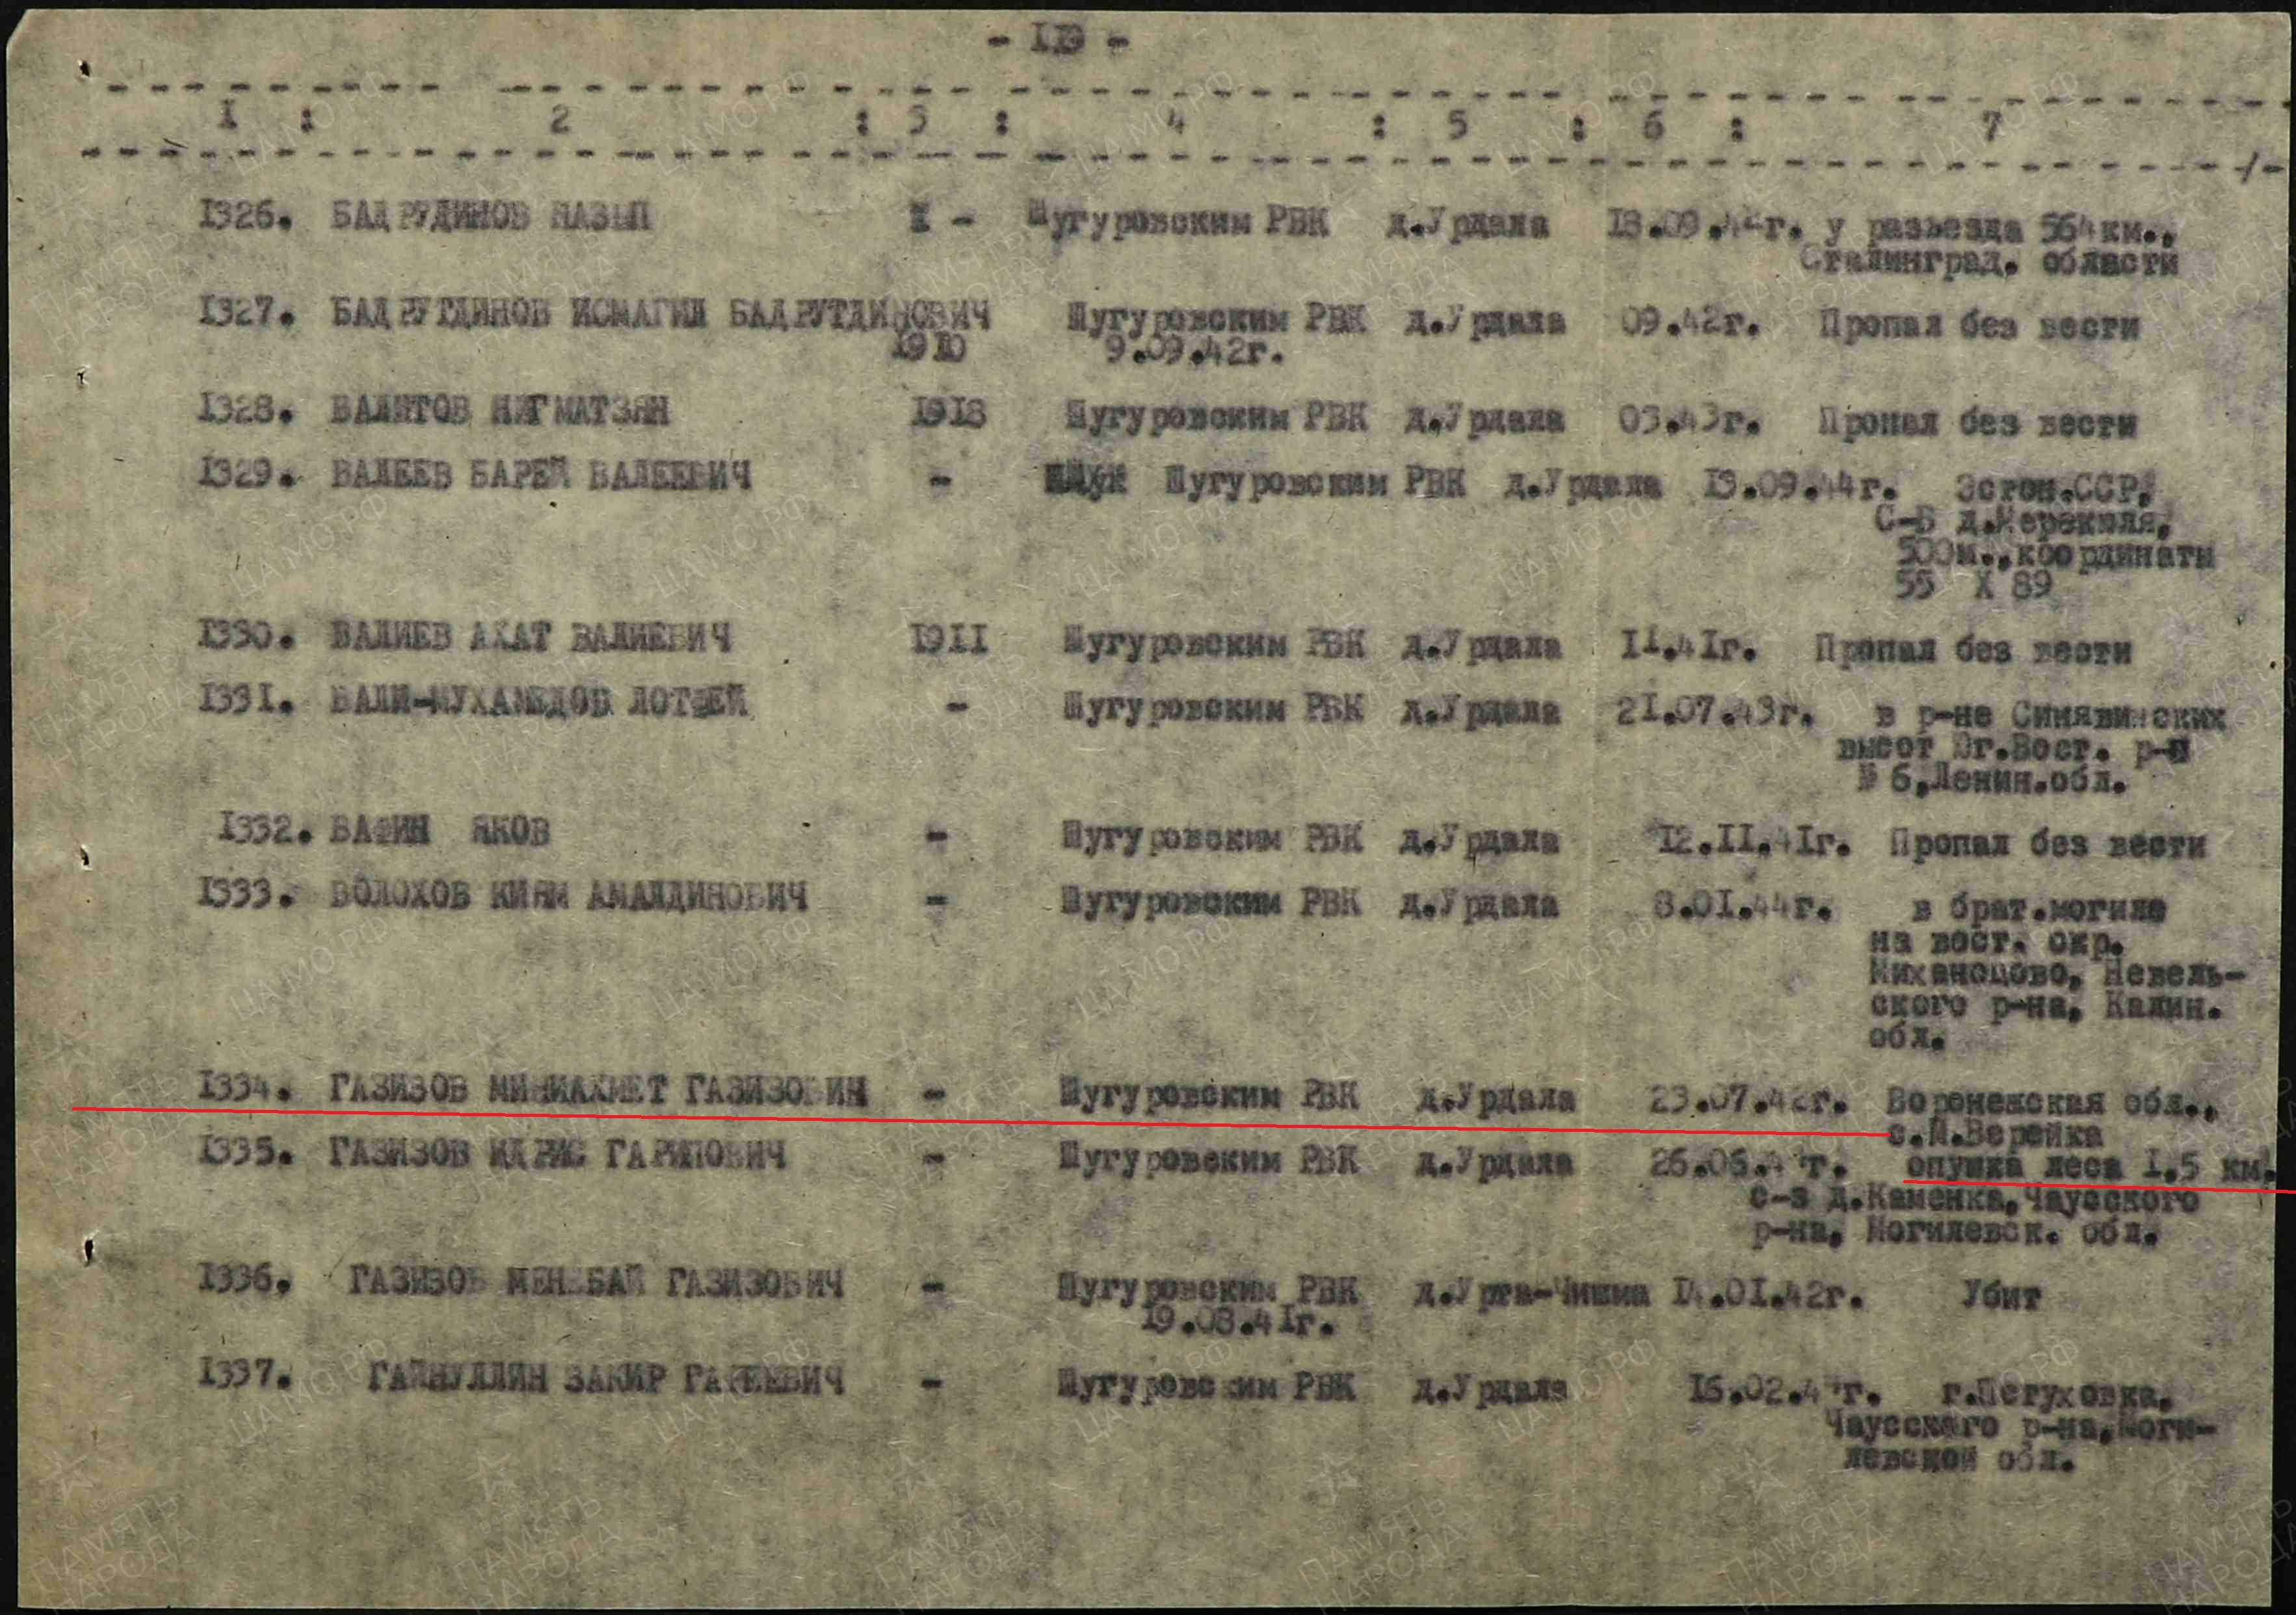 - 119 -
I : 2 : 3 : 4 : 5 : 6 : 7
1326. БАДРУДИНОВ НАЗЫП - Шугуровским РВК д.Урдала 18.09.42г. у разъезда 564км.,
Сталинград. области
1327. БАДРУТДИНОВ ИСМАГИЛ БАДРУТДИНОВИЧ Шугуровским РВК д.Урдала 09.42г. Пропал без вести
1910 9.09.42г.
1328. ВАЛИТОВ НИГМАТЗЯН 1918 Шугуровским РВК д.Урдала 03.43г. Пропал без вести
1329. ВАЛЕЕВ БАРЕЙ ВАЛЕЕВИЧ - Шугуровским РВК д.Урдала 13.09.44г. Эстон.ССР,
С-В д.Мерекюля,
500м.,координаты
55 X 89
1330. ВАЛИЕВ АХАТ ВАЛИЕВИЧ 1911 Шугуровским РВК д.Урдала 11.41г. Пропал без вести
1331. ВАЛИ-МУХАМЕДОВ ЛОТФЕЙ - Шугуровским РВК д.Урдала 21.07.43г. в р-не Синявинских
высот Юг.Вост. р-п
№ 6,Ленин.обл.
1332. ВАФИН ЯКОВ - Шугуровским РВК д.Урдала 12.II.41г. Пропал без вести
1333. ВОЛОХОВ КИЯМ АМАЛДИНОВИЧ - Шугуровским РВК д.Урдала 8.01.44г. в брат.могиле
на вост. окр.
Невель-
ского р-на, Калин.
обл.
1334. ГАЗИЗОВ МИНИАХМЕТ ГАЗИЗОВИЧ - Шугуровским РВК д.Урдала 23.07.42г. Воронежская обл.,
с.М.Верейка
1335. ГАЗИЗОВ ИДРИС ГАРИПОВИЧ - Шугуровским РВК д.Урдала опушка леса 1,5 км.
с-з д.Каменка,Чаусского
р-на, Могилевск. обл.
1336. ГАЗИЗОВ МЕНЕБАЙ ГАЗИЗОВИЧ - Шугуровским РВК д.Урта-Чишма 14.01.42г. Убит
19.08.41г.
1337. ГАЙНУЛЛИН ЗАКИР - Шугуровским РВК д.Урдала г.Петуховка,
Чаусского р-на,Моги-
левской обл.
ПАМЯТЬ НАРОДА
ЦАМО.РФ